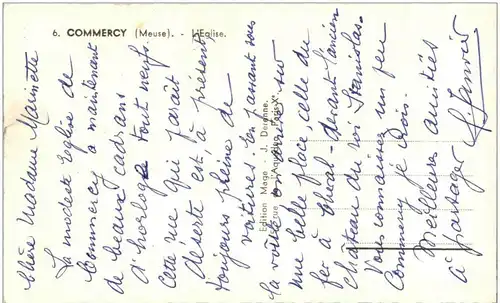 6. COMMERCY (Meuse). - L'Eglise.
Chère Madame Marinette
La modeste Eglise de
Commercy a maintenant
de beaux cadrans
d'horloge tout neufs.
Cette rue qui paraît
déserte est à présent,
toujours pleine de
voitures. En passant sous
la voûte on arrive sur
une belle place, celle du
fer à cheval - devant l'ancien
château du roi Stanislas.
Vous connaissez un peu
Commercy je crois.
Meilleures amitiés
à partager
Edition Mage - J. Deronne.